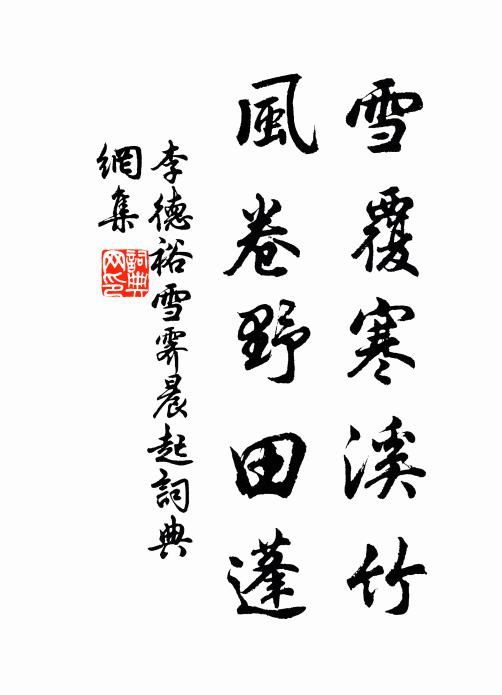 雪覆寒溪竹
風卷野田蓬
李德裕雪霽晨起詞典
網集
詞典网印